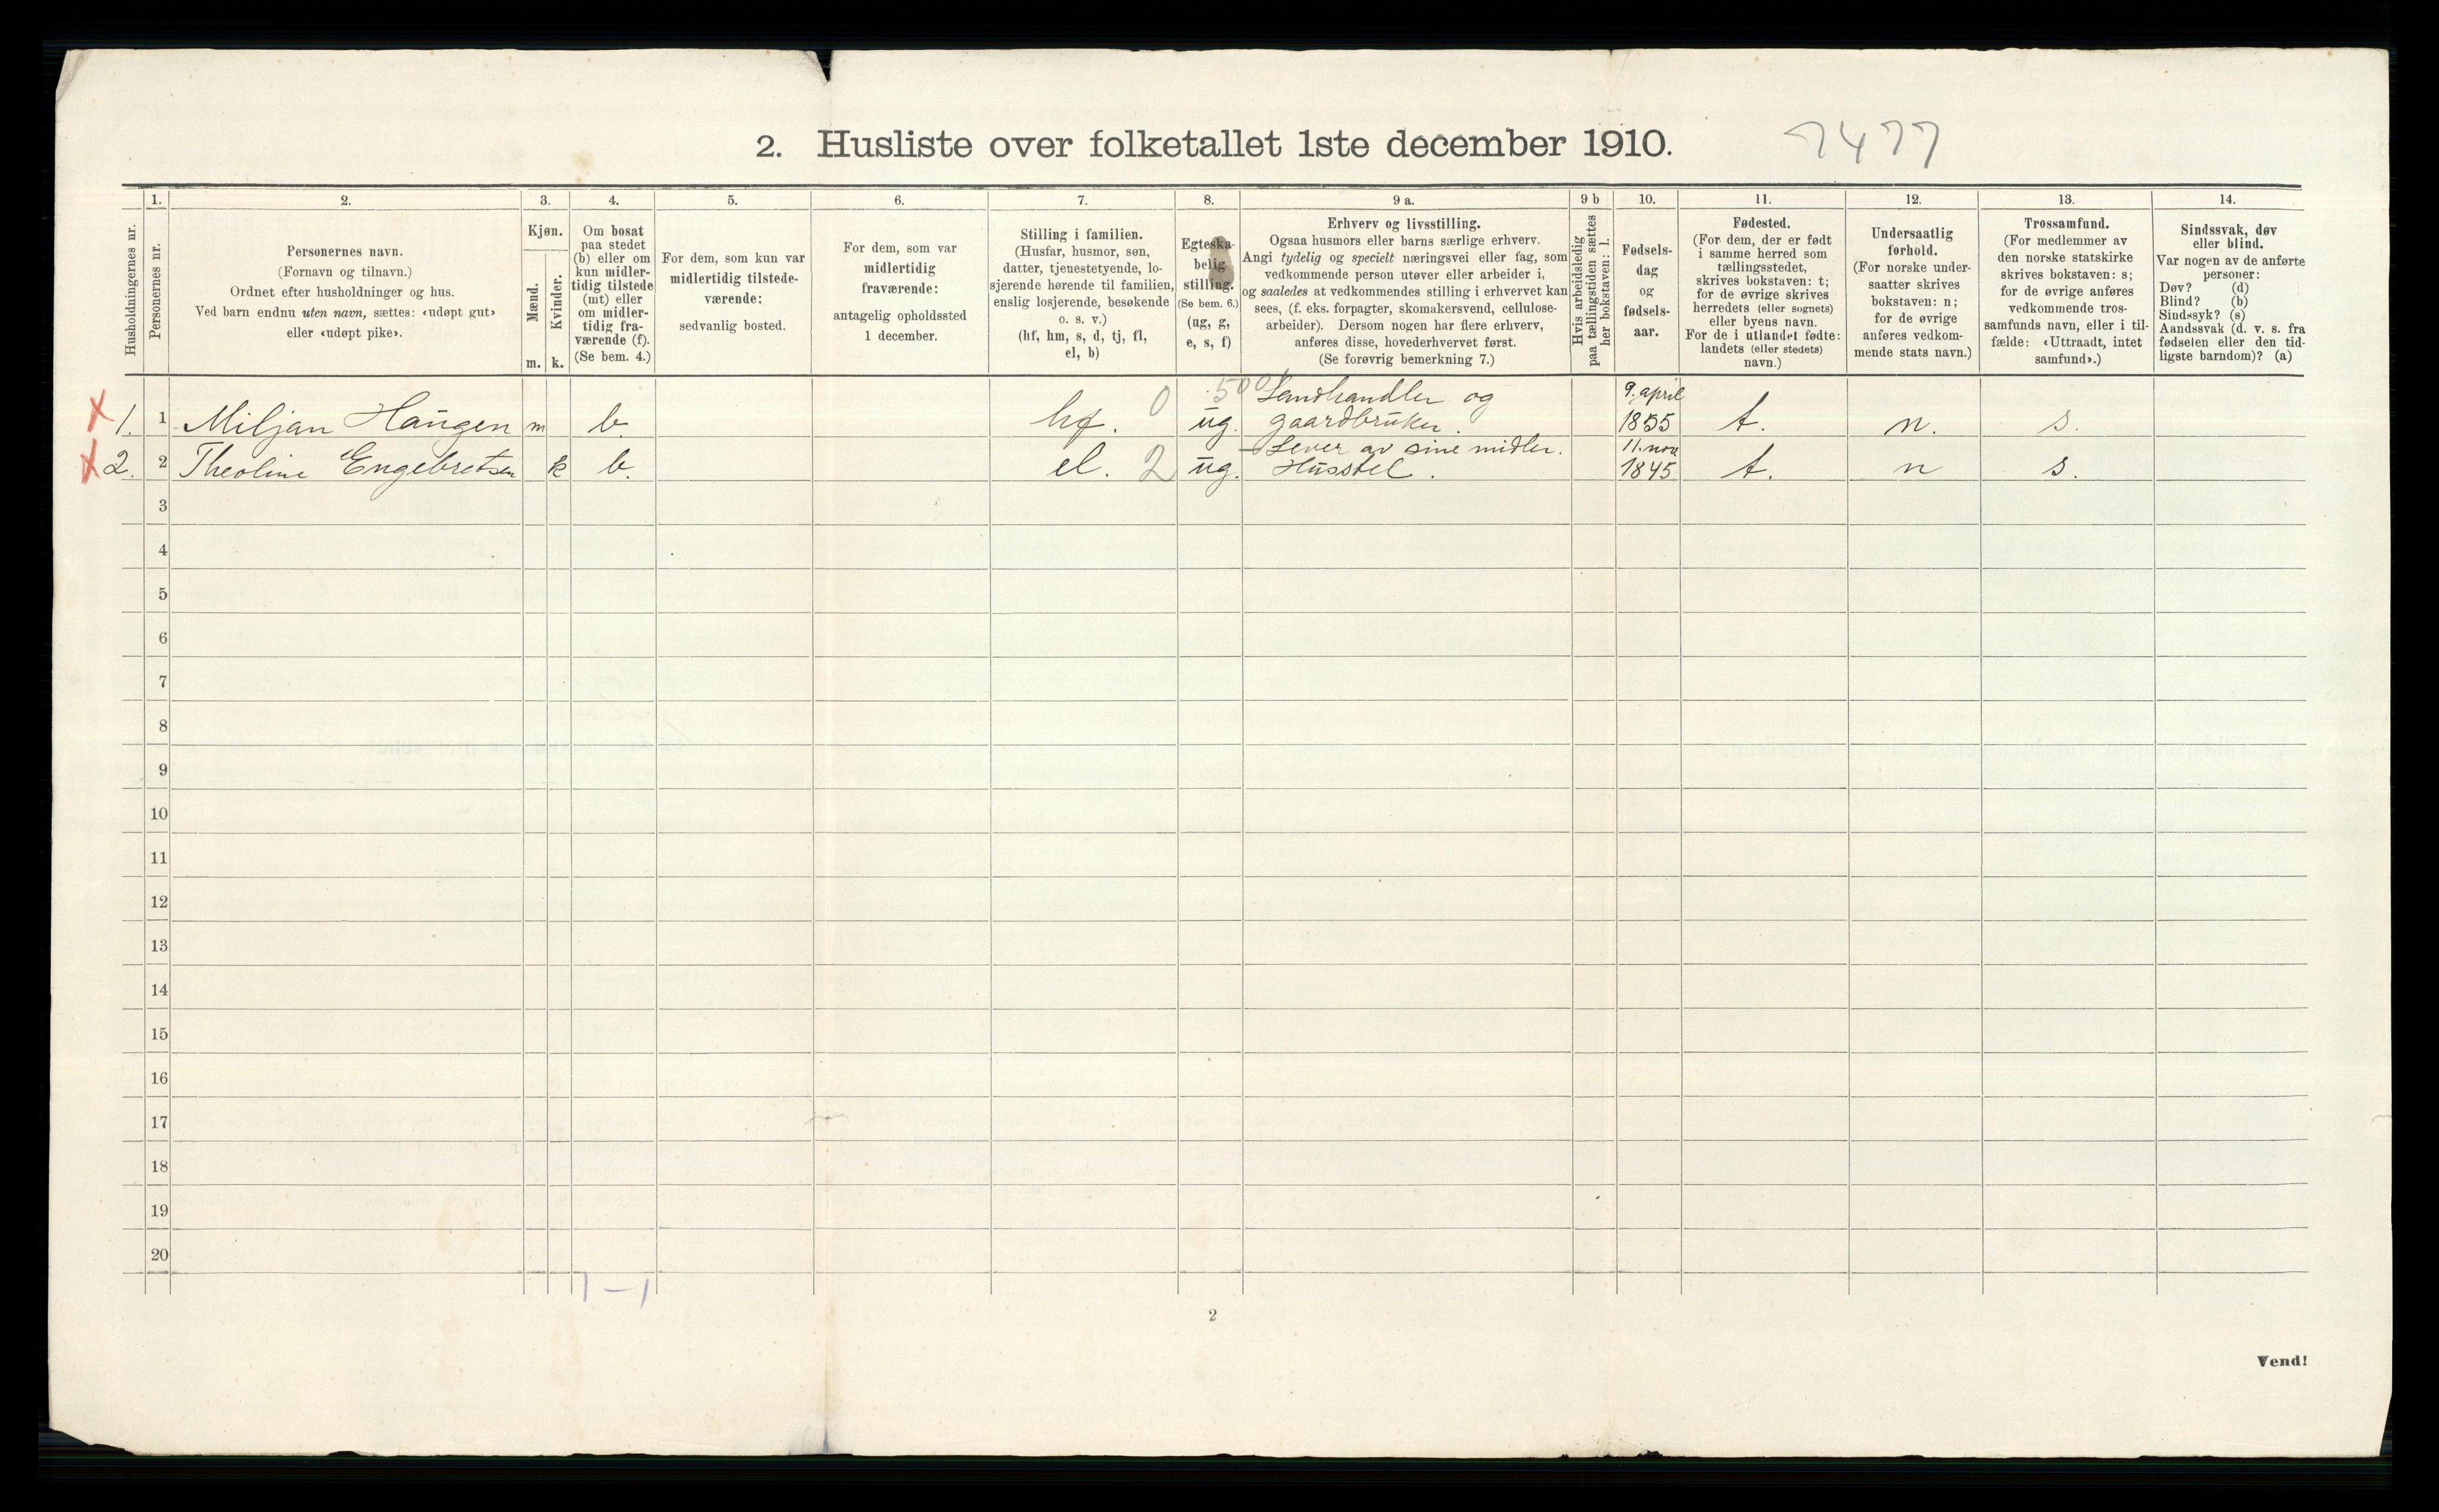 2. Husliste over folketallet 1ste december 1910.
7477
Husholdningernes nr.
1.
Personernes nr.
2.
Personernes navn.
(Fornavn og tilnavn.)
Ordnet efter husholdninger og hus.
Ved barn endnu uten navn, sættes: «udøpt gut»
eller «udøpt pike».
3.
Kjøn.
Mænd.
m.
Kvinder.
k.
4.
Om bosat
paa stedet
(b) eller om
kun midler-
tidig tilstede
(mt) eller
om midler-
tidig fra-
værende (f).
(Se bem. 4.)
5.
For dem, som kun var
midlertidig tilstede-
værende:
sedvanlig bosted.
6.
For dem, som var
midlertidig
fraværende:
antagelig opholdssted
1 december.
7.
Stilling i familien.
(Husfar, husmor, søn,
datter, tjenestetyende, lo-
sjerende hørende til familien,
enslig losjerende, besøkende
o. s. v.)
(hf, hm, s, d, tj, fl,
el, b)
8.
Egteska-
belig
stilling.
(Se bem. 6.)
(ug, g,
e, s, f)
9 a.
Erhverv og livsstilling.
Ogsaa husmors eller barns særlige erhverv.
Angi tydelig og specielt næringsvei eller fag, som
vedkommende person utøver eller arbeider i,
og saaledes at vedkommendes stilling i erhvervet kan
sees, (f. eks. forpagter, skomakersvend, cellulose-
arbeider). Dersom nogen har flere erhverv,
anføres disse, hovederhvervet først.
(Se forøvrig bemerkning 7.)
9 b
Hvis arbeidsledig
paa tællingstiden sættes
her bokstaven: l.
10.
Fødsels-
dag
og
fødsels-
aar.
11.
Fødested.
(For dem, der er født
i samme herred som
tællingsstedet,
skrives bokstaven: t;
for de øvrige skrives
herredets (eller sognets)
eller byens navn.
For de i utlandet fødte:
landets (eller stedets)
navn.)
12.
Undersaatlig
forhold.
(For norske under-
saatter skrives
bokstaven: n;
for de øvrige
anføres vedkom-
mende stats navn.)
13.
Trossamfund.
(For medlemmer av
den norske statskirke
skrives bokstaven: s;
for de øvrige anføres
vedkommende tros-
samfunds navn, eller i til-
fælde: «Uttraadt, intet
samfund».)
14.
Sindssvak, døv
eller blind.
Var nogen av de anførte
personer:
Døv? (d)
Blind? (b)
Sindssyk? (s)
Aandssvak (d. v. s. fra
fødselen eller den tid-
ligste barndom)? (a)
500 Landhandler og 9. april
x 1. 1 Miljan Haugen m b. hf. 0 ug. gaardbruker. 1855 t. n. s.
Lever av sine midler. 11. nov
x 2. 2 Theoline Engebretsen k b. el. 2 ug. Husstel. 1845 t. n s.
3
4
5
6
7
8
9
10
11
12
13
14
15
16
17
18
19
20
1 – 1
2
Vend!